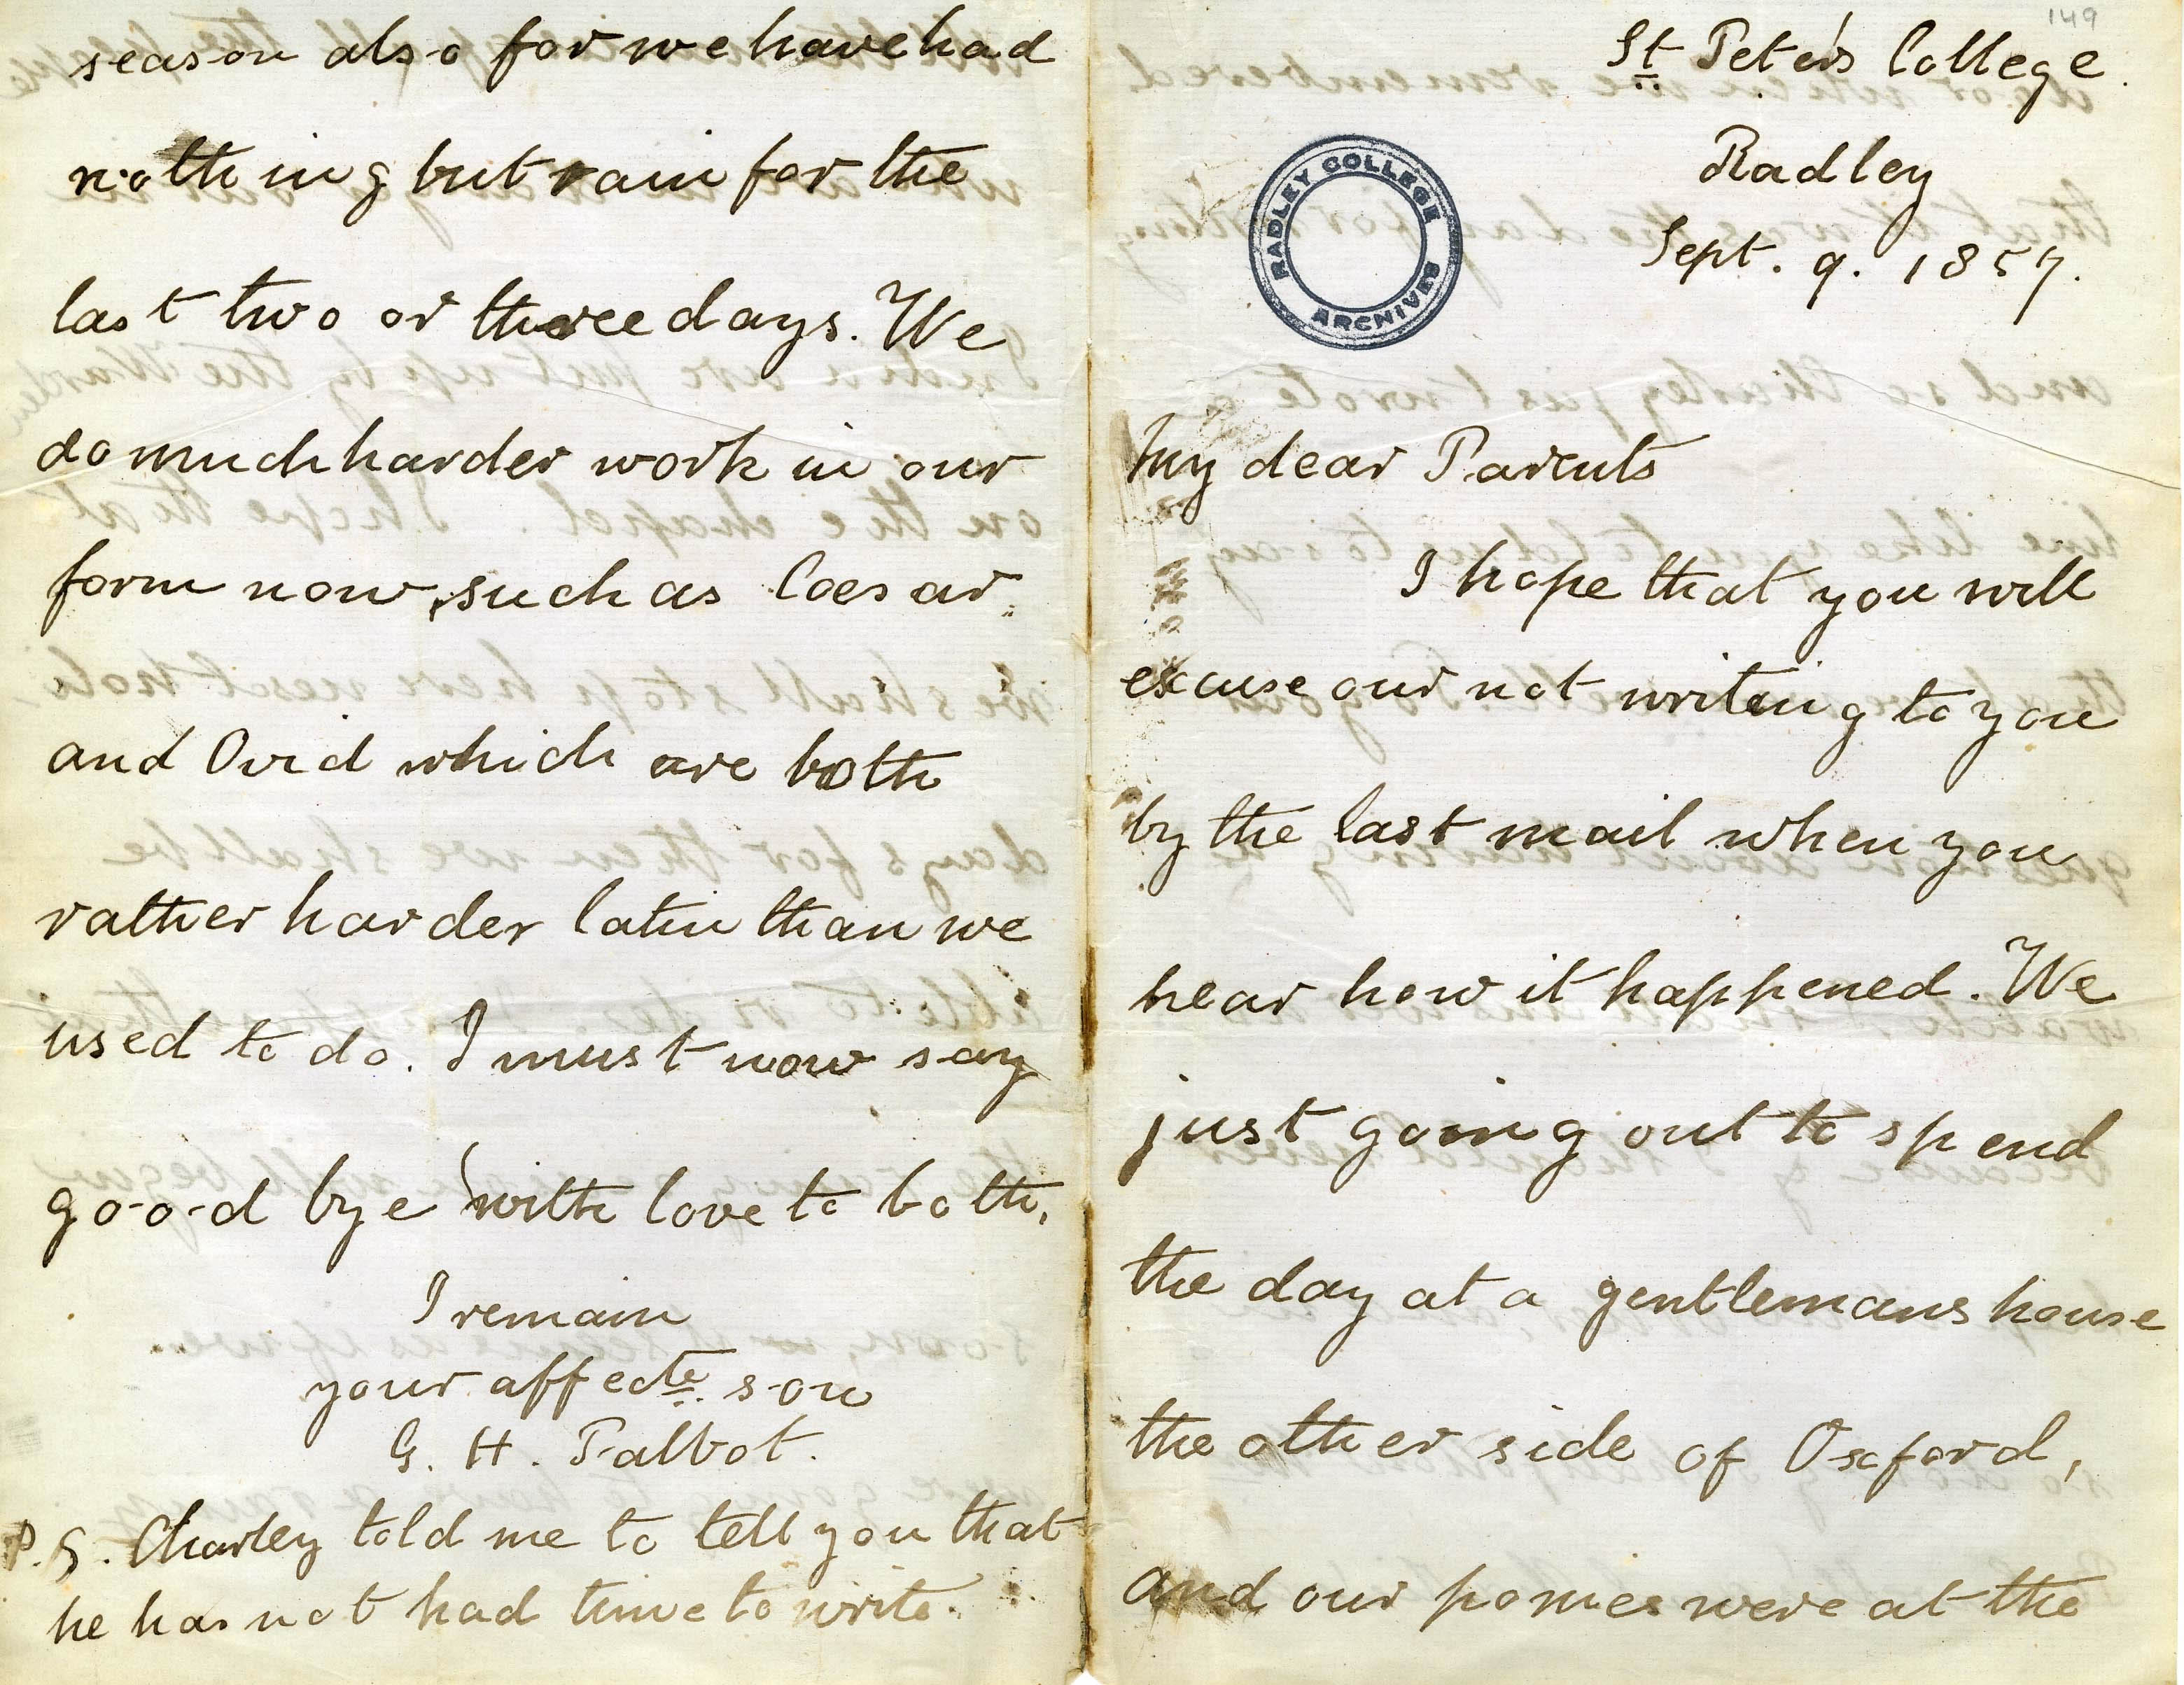 149
St Peter's College
Radley
Sept. 9. 1857.
RADLEY COLLEGE
ARCHIVES
My dear Parents
I hope that you will
excuse our not writing to you
by the last mail when you
hear how it happened. We
just going out to spend
the day at a gentlemans house
the other side of Oxford,
and our ponies were at the
season also for we have had
nothing but rain for the
last two or three days. We
do much harder work in our
form now, such as Coesar
and Ovid which are both
rather harder latin than we
used to do. I must now say
good bye with love to both.
I remain
your affecte. son
G. H. Talbot.
P.S. Charley told me to tell you that
he has not had time to write.